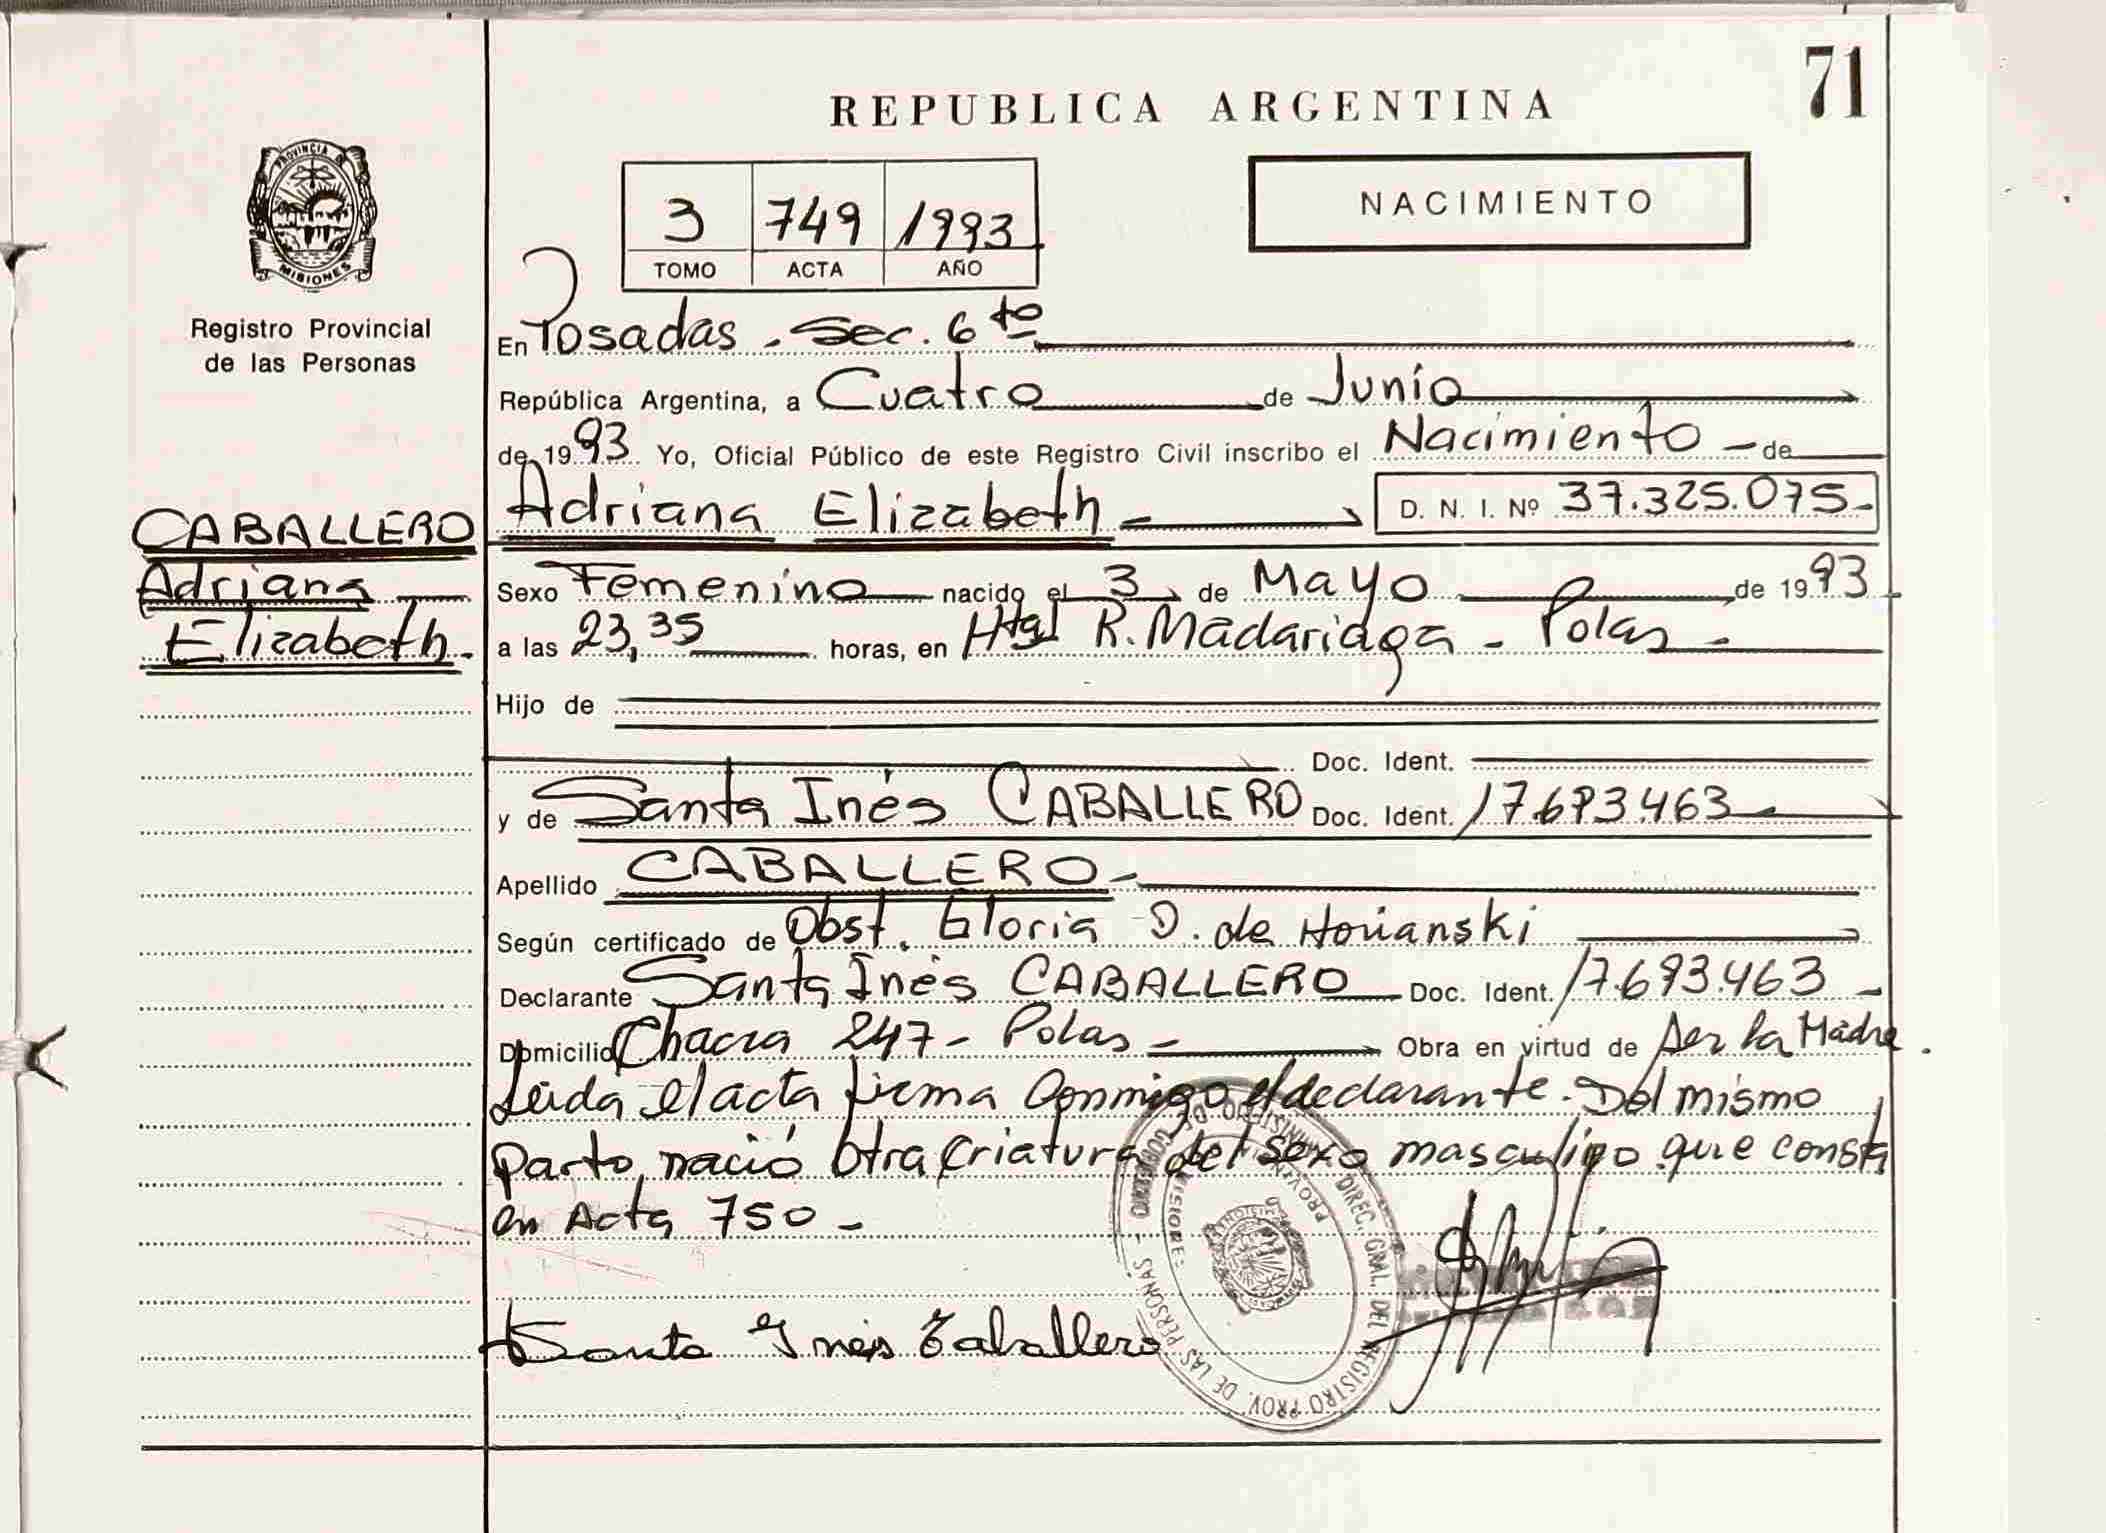 71
REPUBLICA ARGENTINA
NACIMIENTO
3 749 1993
TOMO ACTA AÑO
PROVINCIA DE
MISIONES
Registro Provincial
de las Personas
CABALLERO
Adriana
Elizabeth.
En Posadas - Sec. 6 to
República Argentina, a Cuatro de Junio
de 19 93 Yo, Oficial Público de este Registro Civil inscribo el Nacimiento - de
Adriana Elizabeth D. N. I. Nº 37.325.075-
Sexo Femenino nacido el 3 de Mayo de 19 93
a las 23,35 horas, en Htal R. Madariaga - Pdas -
Hijo de
Doc. Ident.
y de Santa Inés CABALLERO Doc. Ident. 17.693.463
Apellido CABALLERO -
Según certificado de Obst. Gloria D. de
Declarante Santa Inés CABALLERO Doc. Ident. 17.693.463 -
Domicilio Chacra 247 - Pdas - Obra en virtud de ser la Madre.
Leida el acta firma Conmigo el declarante. Del mismo
parto nació otra criatura del sexo masculino que consta
en Acta 750 -
Santa Inés Caballero
MINISTERIO DE GOBIERNO - DIREC. GRAL. DEL REGISTRO PROV. DE LAS PERSONAS -
MISIONES